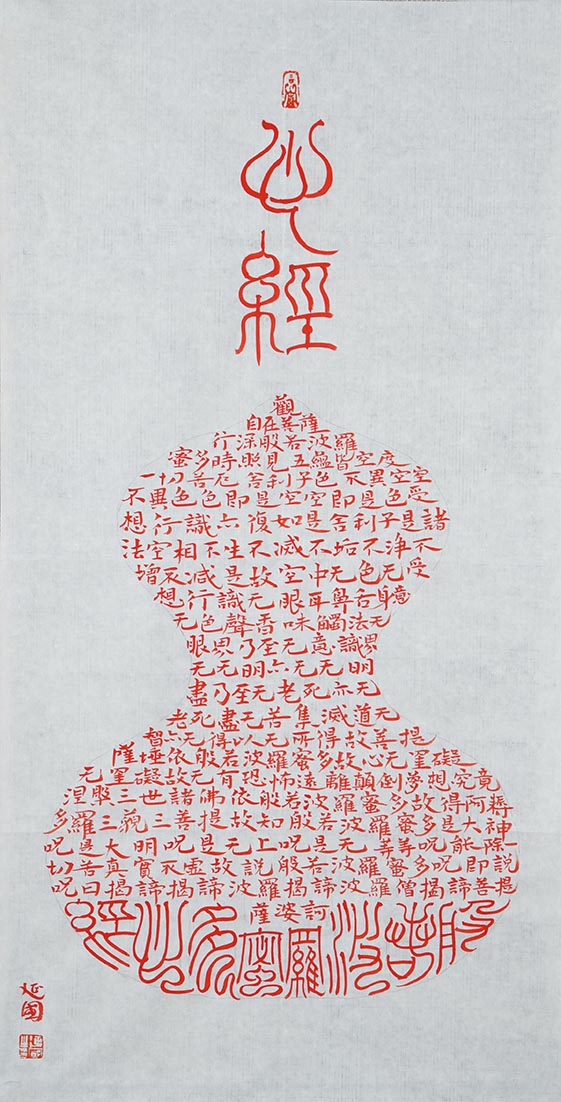 心經
觀
自在菩薩
行深般若波羅
蜜多時照見五蘊皆空度
一切苦厄舍利子色不異空空
不異色色即是空空即是色受
想行識亦復如是舍利子是諸
法空相不生不滅不垢不淨不
增不減是故空中无色无受
想行識无眼耳鼻舌身意
无色聲香味觸法无
眼界乃至无意識界
无无明亦无无明
盡乃至无老死亦无
老死盡无苦集滅道无
智亦无得以无所得故菩提
薩埵依般若波羅蜜多故心无罣礙
无罣礙故无有恐怖遠離顛倒夢想究竟
涅槃三世諸佛依般若波羅蜜多故得阿耨
多羅三藐三菩提故知般若波羅蜜多是大神
咒是大明咒是无上咒是无等等咒能除一
切苦真實不虛故說般若波羅蜜多咒即說
咒曰揭諦揭諦波羅揭諦波羅僧揭諦菩提
薩婆訶
般若波羅蜜多心經
延國